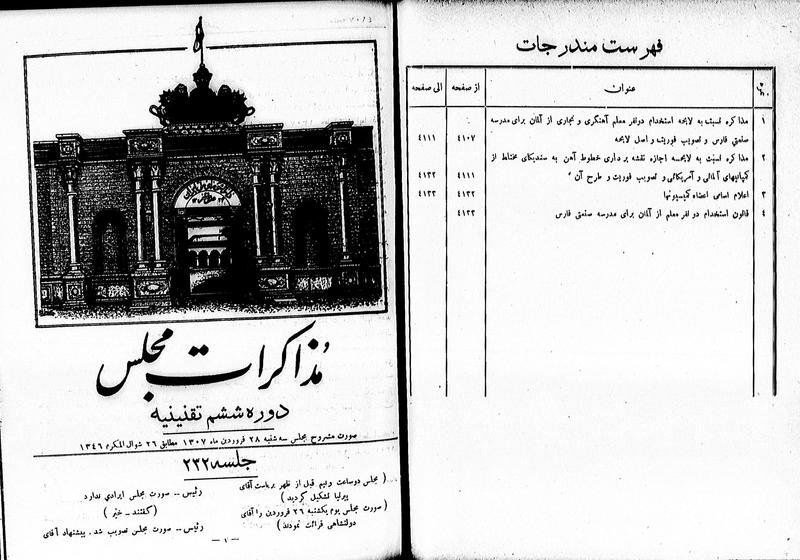 فهرست مندرجات
عنوان
از صفحه
الی صفحه
۱
مذاکره نسبت به لایحه استخدام دو نفر معلم آهنگری و نجاری از آلمان برای مدرسه
صنعتی فارس و تصویب فوریت و اصل لایحه
۴۱۰۷
۴۱۱۱
۲
مذاکره نسبت به لایحه اجازه نقشه برداری خطوط آهن به سندیکای مختلط از
کمپانیهای آلمانی و آمریکائی و تصویب فوریت و طرح آن
۴۱۱۱
۴۱۳۲
۳
اعلام اسامی اعضاء کمیسیونها
۴۱۳۲
۴۱۳۳
۴
قانون استخدام دو نفر معلم از آلمان برای مدرسه صنعتی فارس
۴۱۳۳
مذاکرات مجلس
دوره ششم تقنینیه
صورت مشروح مجلس سه شنبه ۲۸ فروردین ماه ۱۳۰۷ مطابق ۲۶ شوال المکرم ۱۳۴۶
جلسه ۲۳۲
( مجلس دو ساعت و نیم قبل از ظهر بریاست آقای
پیرنیا تشکیل گردید )
( صورت مجلس یوم یکشنبه ۲۶ فروردین را آقای
دولتشاهی قرائت نمودند )
رئیس ــ صورت مجلس ایرادی ندارد
( گفتند ــ خیر )
رئیس ــ صورت مجلس تصویب شد. پیشنهاد آقای
ــ ۱ ــ